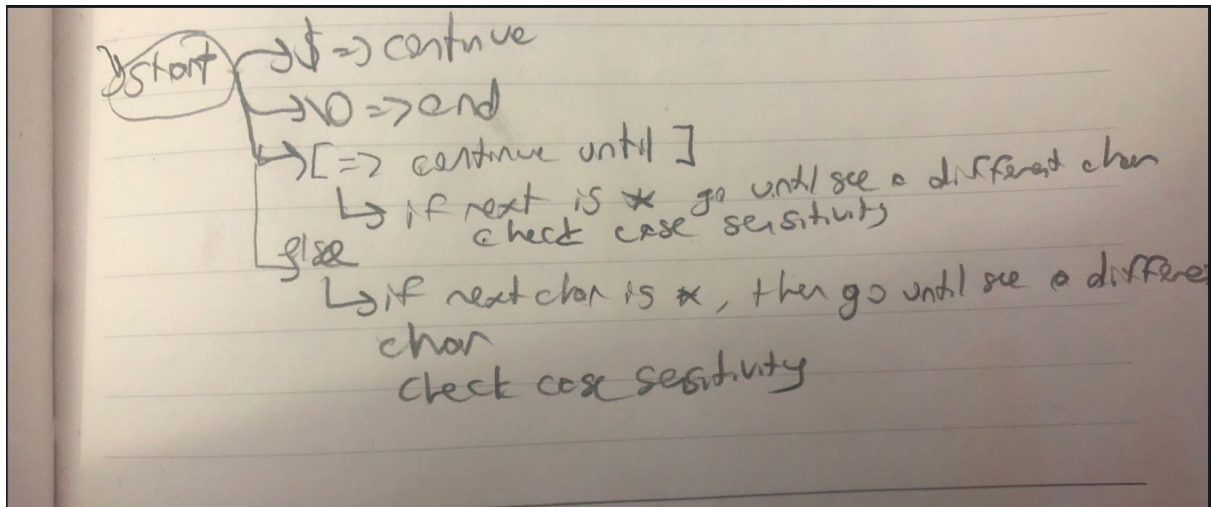 start
$ => continue
\0 => end
[ => continue until ]
if next is * go until see a different char
check case sensitivity
else
if next char is *, then go until see a differe
char
check case sesitivity